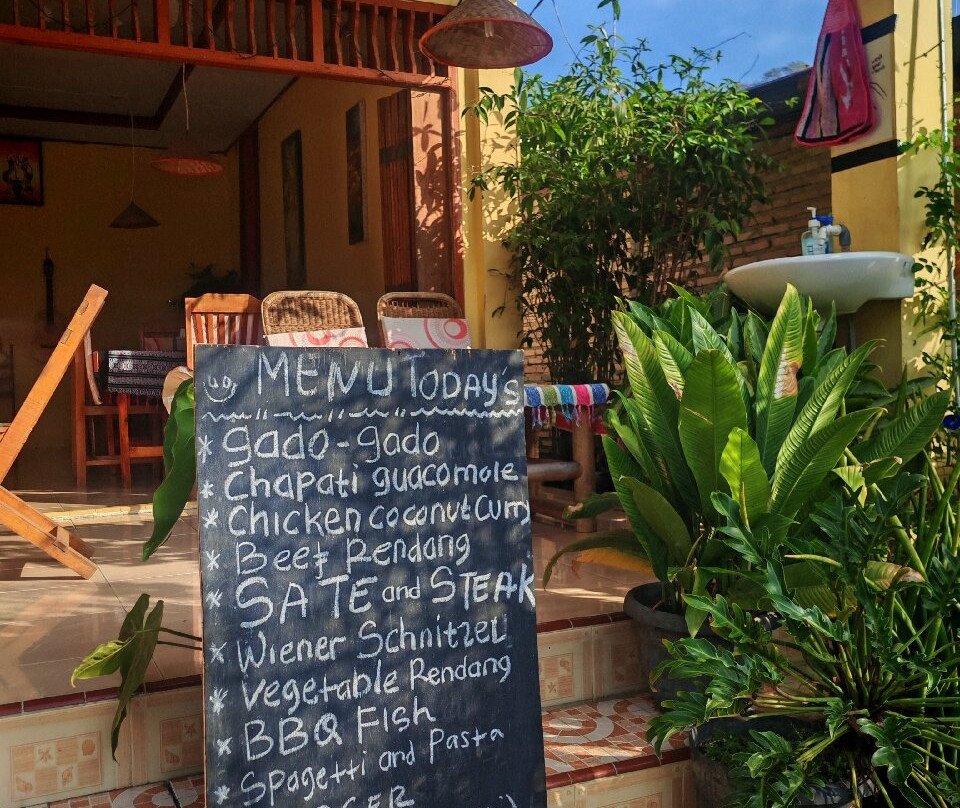 MENU TODAY'S
* gado-gado
* Chapati guacomole
* Chicken coconut Curry
* Beef Rendang
* SATE and STEAK
* Wiener Schnitzel
* Vegetable Rendang
* BBQ Fish
* Spagetti and Pasta